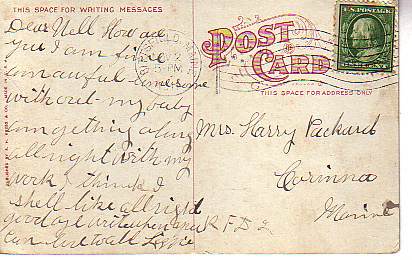 THIS SPACE FOR WRITING MESSAGES
Dear Nell How are
you I am fine
am awful lonesome
without my baby
am getting along
allright with my
work I think I
shell like allright
good bye write when you
can
POST
CARD
THIS SPACE FOR ADDRESS ONLY
U.S. POSTAGE
Mrs. Harry Packard
Corinna
R F D 2
Maine